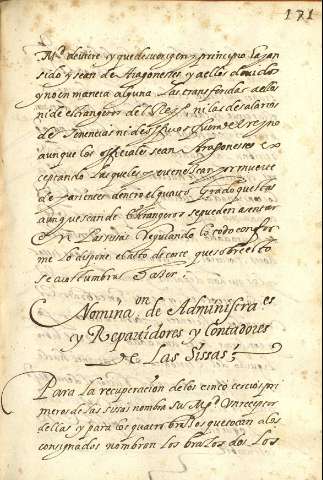 171
Mag.d tuviere y que de su origen y principio hayan
sido y sean de Aragoneses y a ellos devidos
y no en manera alguna las transferidas a ellos
ni de estrangeros del Reyno, ni las de salarios
de Tenencias ni de officio
aunque los officiales sean Aragoneses ex
ceptando las que les
de parientes dentro el quarto Grado que estas
aunque sean de Estrangeros se pueden assentar
las sisas Regulando lo todo confor
me lo dispone el acto de corte que sobre esto
se acostumbra Hazer.
Nominaon de Administraes
y Repartidores y Contadores
de Las Sissas
Para la recuperacion de los cinco tercios pri
meros de las sissas nombra Su Mag.d Un receptor
dellas y para los quatro braços que tocan a los
consignados nombron los braços dos Los